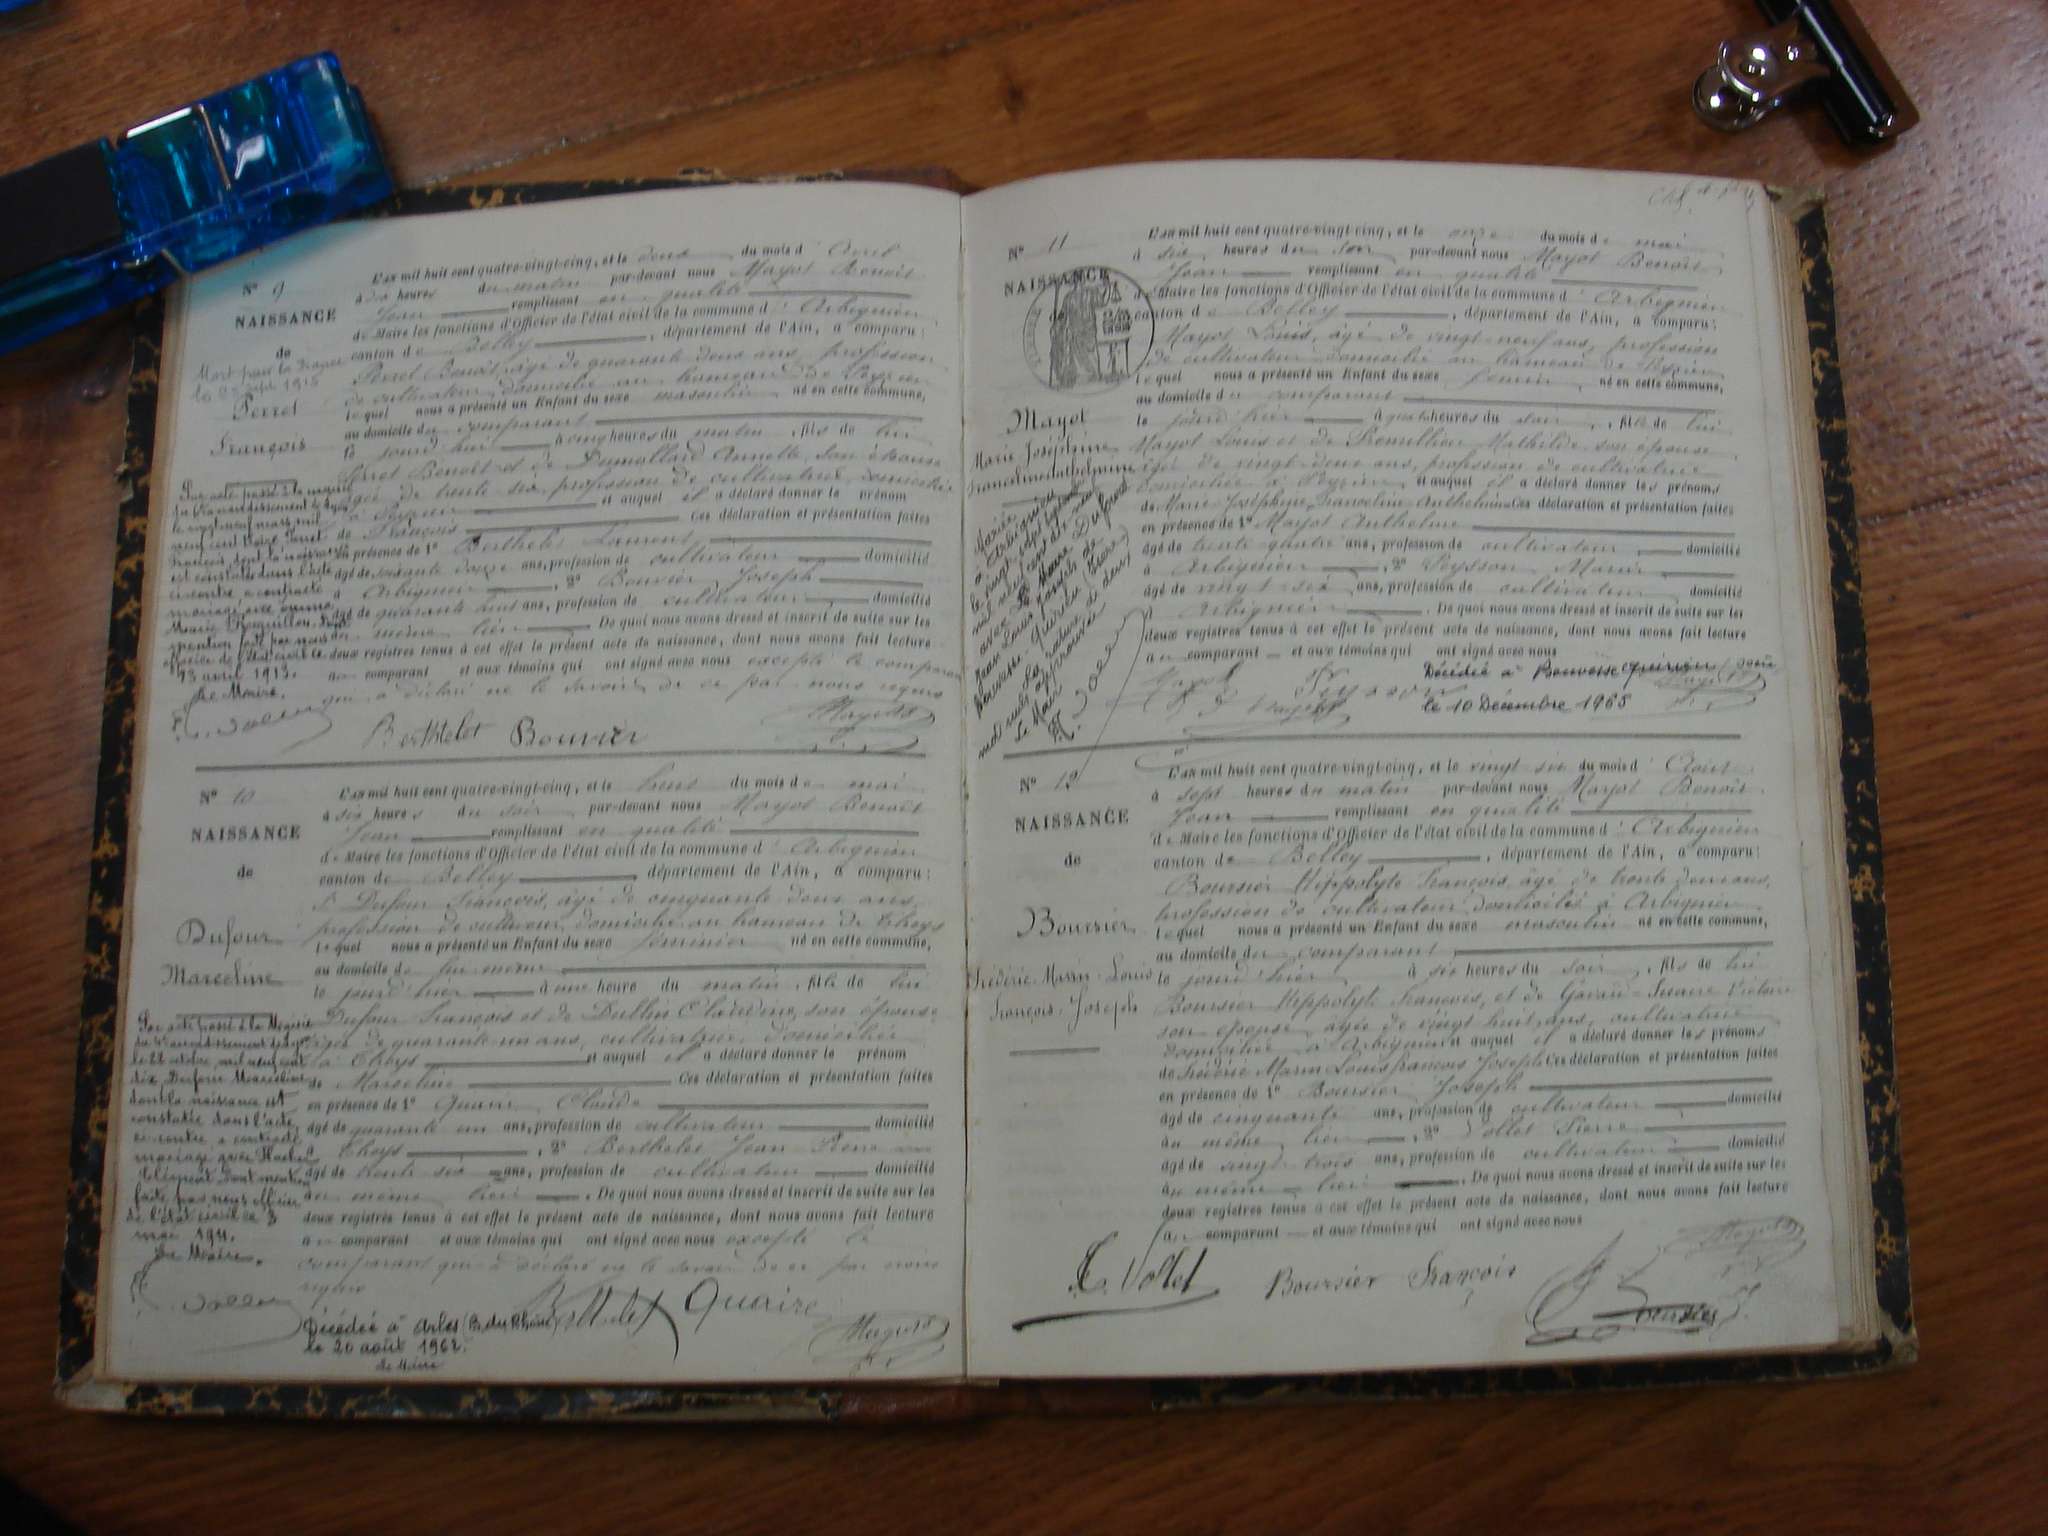 N° 9
NAISSANCE
de
Mort pour la France
le 25 sept 1915
Perret
François
Par acte passé à la mairie
du arrondissement de Lyon
le vingt neuf mars mil
neuf cent treize Perret
François dont la naissance
est constatée dans l'acte
ci-contre, a contracté
mariage avec
Marie
mention faite par nous
officier de l'état civil le
13 avril 1913.
Le Maire.
L'an mil huit cent quatre-vingt-cinq, et le deux du mois d' Avril
à dix heures du matin par-devant nous Mayot Benoit
Jean remplissant en qualité
de Maire les fonctions d'Officier de l'état civil de la commune d' Arbignieu
canton de Belley, département de l'Ain, a comparu:
Perret Benoit, âgé de quarante deux ans, profession
de cultivateur, domicilié au hameau de Peyzieu
lequel nous a présenté un Enfant du sexe masculin né en cette commune,
au domicile du comparant
le jourd'hui à cinq heures du matin, fils de lui
Perret Benoit et de Dumollard Annette, son épouse
âgée de trente six, profession de cultivatrice, domiciliée
à Peyzieu et auquel il a déclaré donner le prénom
de François Ces déclaration et présentation faites
en présence de 1° Berthelet Laurent
âgé de soixante douze ans, profession de cultivateur domicilié
à Arbignieu, 2° Bouvier Joseph
âgé de quarante huit ans, profession de cultivateur domicilié
au même lieu De quoi nous avons dressé et inscrit de suite sur les
deux registres tenus à cet effet le présent acte de naissance, dont nous avons fait lecture
au comparant et aux témoins qui ont signé avec nous excepté le comparant
qui a déclaré ne le savoir de ce par nous requis
Berthelet Bouvier Mayot
N° 10
NAISSANCE
de
Dufour
Marceline
Par acte passé à la Mairie
du arrondissement de Lyon
le 22 octobre mil neuf cent
dix Dufour Marceline
dont la naissance est
constatée dans l'acte
ci-contre a contracté
mariage avec
dont mention
faite par nous officier
de l'état civil le 3
mai 1911.
Le Maire.
L'an mil huit cent quatre-vingt-cinq, et le trois du mois de mai
à six heures du soir par-devant nous Mayot Benoit
Jean remplissant en qualité
de Maire les fonctions d'Officier de l'état civil de la commune d' Arbignieu
canton de Belley département de l'Ain, a comparu:
Dufour François, âgé de cinquante deux ans,
profession de cultivateur, domicilié au hameau de Thoys
lequel nous a présenté un Enfant du sexe féminin né en cette commune,
au domicile de lui même
le jourd'hier à une heure du matin, fille de lui
Dufour François et de Dullin Claudine, son épouse
âgée de quarante un ans, cultivatrice, domiciliée
à Thoys et auquel il a déclaré donner le prénom
de Marceline Ces déclaration et présentation faites
en présence de 1° Quaire Claude
âgé de quarante un ans, profession de cultivateur domicilié
à Thoys, 2° Berthelet Jean Pierre
âgé de trente six ans, profession de cultivateur domicilié
au même lieu. De quoi nous avons dressé et inscrit de suite sur les
deux registres tenus à cet effet le présent acte de naissance, dont nous avons fait lecture
au comparant et aux témoins qui ont signé avec nous excepté le
comparant qui a déclaré ne le savoir de ce par nous
requis
Berthelet Quaire
Mayot
Décédée à Arles (B. du Rhône)
le 20 août 1962.
Le Maire
N° 11
NAISSANCE
de
Mayot
Marie Joséphine
Franceline Anthelmine
Mariée
à Arbignieu
le vingt sept
mil neuf cent
avec Dufour
Jean Louis
Bouvesse-Quirieu (Isère)
Le Maire
L'an mil huit cent quatre-vingt-cinq, et le onze du mois de mai
à six heures du soir par-devant nous Mayot Benoit
Jean remplissant en qualité
de Maire les fonctions d'Officier de l'état civil de la commune d' Arbignieu
canton de Belley, département de l'Ain, a comparu:
Mayot Louis, âgé de vingt-neuf ans, profession
de cultivateur domicilié au hameau de Peyzieu
lequel nous a présenté un Enfant du sexe féminin né en cette commune,
au domicile du comparant
le jourd'hier à quatre heures du soir, fille de lui
Mayot Louis et de Mathilde son épouse
âgée de vingt-deux ans, profession de cultivatrice
domiciliée à Peyzieu et auquel il a déclaré donner les prénoms
de Marie-Joséphine, Franceline Anthelmine Ces déclaration et présentation faites
en présence de 1° Mayot Anthelme
âgé de trente quatre ans, profession de cultivateur domicilié
à Arbignieu, 2° Peysson Marin
âgé de vingt-six ans, profession de cultivateur domicilié
à Arbignieu. De quoi nous avons dressé et inscrit de suite sur les
deux registres tenus à cet effet le présent acte de naissance, dont nous avons fait lecture
au comparant et aux témoins qui ont signé avec nous
Mayot Peysson Mayot
Décédée à Bouvesse Quirieu
le 10 Décembre 1965
N° 12
NAISSANCE
de
Boursier
Frédéric-Marin-Louis
François-Joseph
L'an mil huit cent quatre-vingt-cinq, et le vingt six du mois d' Août
à sept heures du matin par-devant nous Mayot Benoit
Jean remplissant en qualité
de Maire les fonctions d'Officier de l'état civil de la commune d' Arbignieu
canton de Belley, département de l'Ain, a comparu:
Boursier Hippolyte François, âgé de trente deux ans,
profession de cultivateur domicilié à Arbignieu
lequel nous a présenté un Enfant du sexe masculin né en cette commune,
au domicile du comparant
le jourd'hier à six heures du soir, fils de lui
Boursier Hippolyte François, et de Victoire
son épouse, âgée de vingt huit ans, cultivatrice
domiciliée à Arbignieu et auquel il a déclaré donner les prénoms
de Frédéric Marin Louis François Joseph Ces déclaration et présentation faites
en présence de 1° Boursier Joseph
âgé de cinquante ans, profession de cultivateur domicilié
au même lieu, 2° Vollet Pierre
âgé de vingt trois ans, profession de cultivateur domicilié
au même lieu. De quoi nous avons dressé et inscrit de suite sur les
deux registres tenus à cet effet le présent acte de naissance, dont nous avons fait lecture
au comparant et aux témoins qui ont signé avec nous
Vollet Boursier François Boursier Mayot